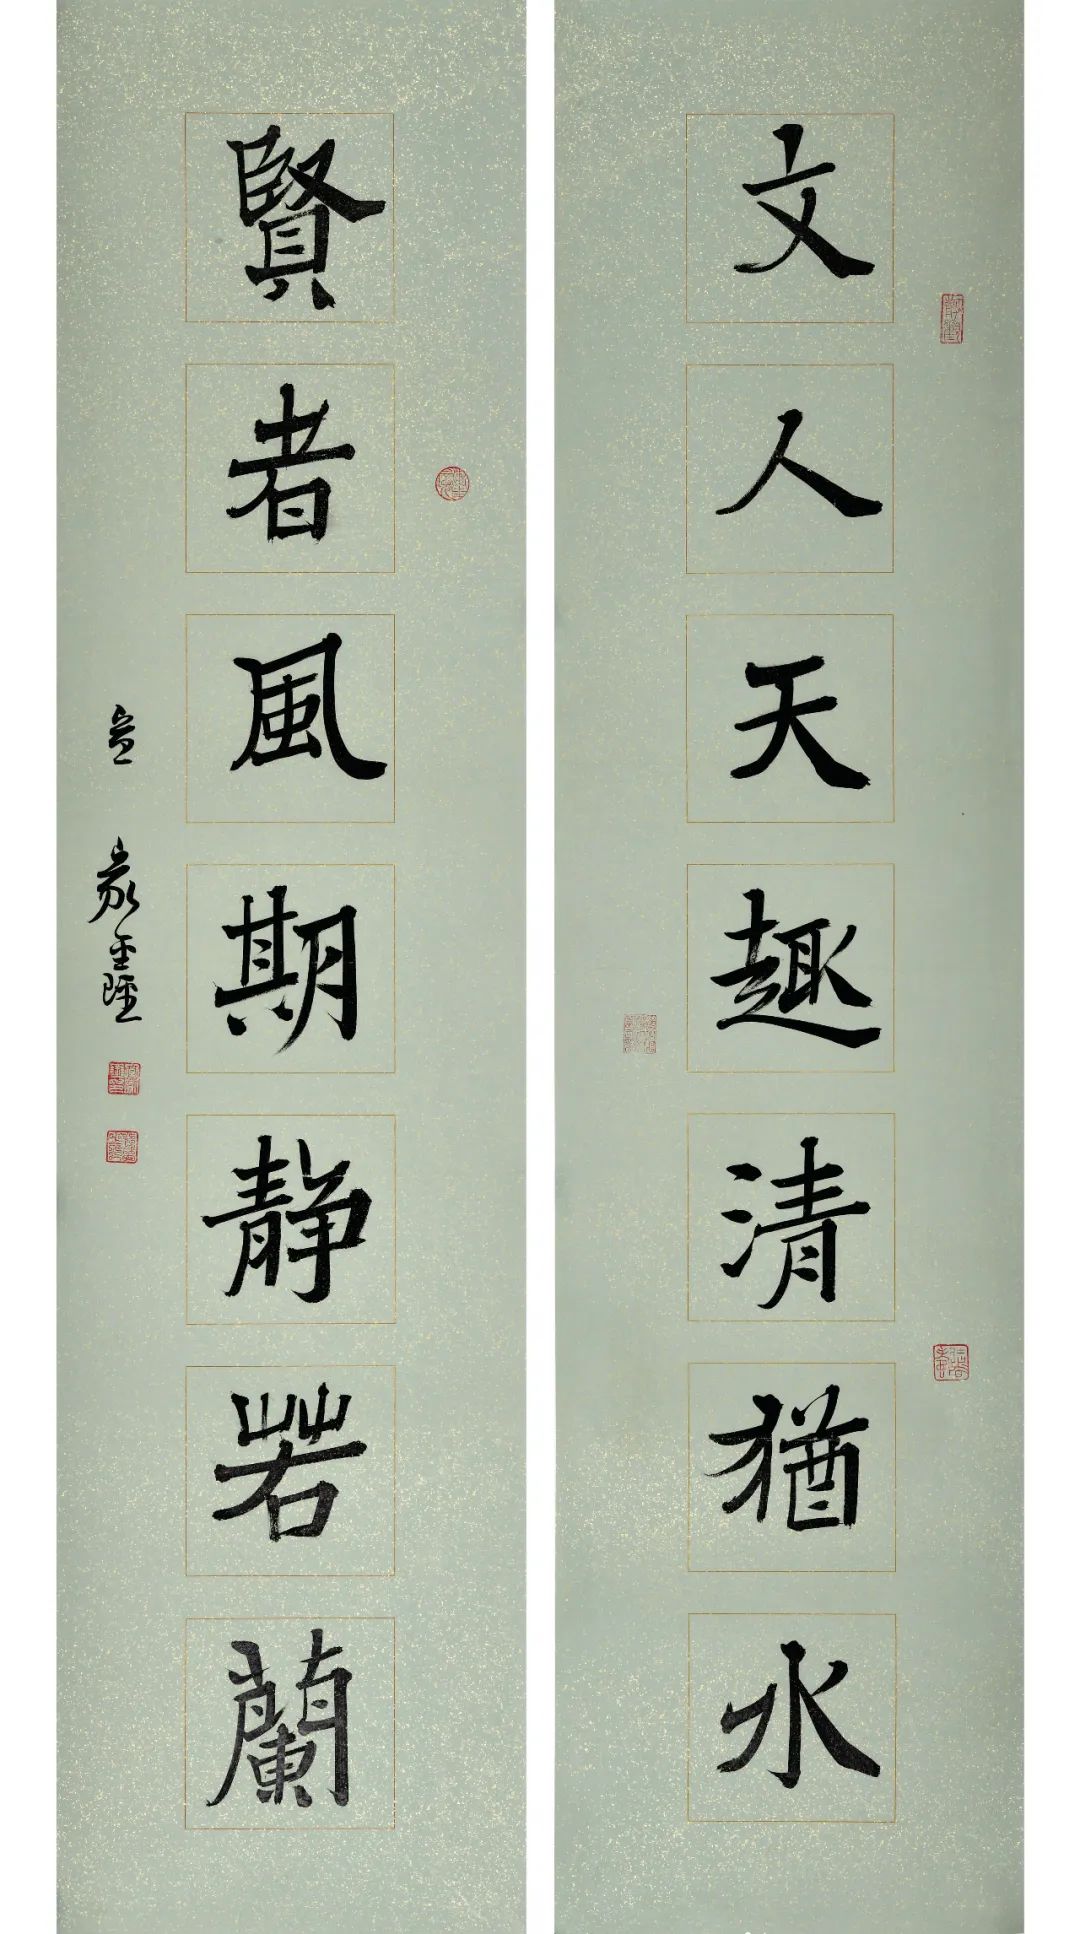 文人天趣清猶水
賢者風期静若蘭